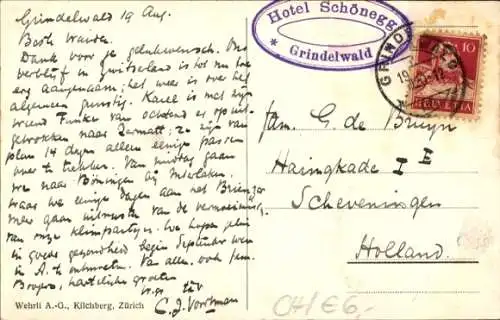 Grindelwald 19 Aug.
Dank voor je gelukwensch. Ons
verblijf in Zwitserland is tot nu toe
erg aangenaam; het weer is over het
algemeen gunstig. Karel is met zijn
vriend Funke van ochtend er op uit-
getrokken naar Zermatt; ze zijn van
plan 14 dagen alleen eenige passen
over te trekken. Van middag gaan
we naar Böningen bij Interlaken,
waar we eenige dagen aan het Brienzer
meer gaan uitrusten van de vermoeienis
van onze klimpartijen. We hopen
in goede gezondheid begin September weer
in A. te
hartelijke groeten
C. J. Vorstman
Wehrli A.-G., Kilchberg, Zürich
Hotel Schönegg
* Grindelwald *
GRINDELWALD
10
HELVETIA
Fam. G. de Bruyn
Haringkade I E
Scheveningen
Holland
CH/E6,-